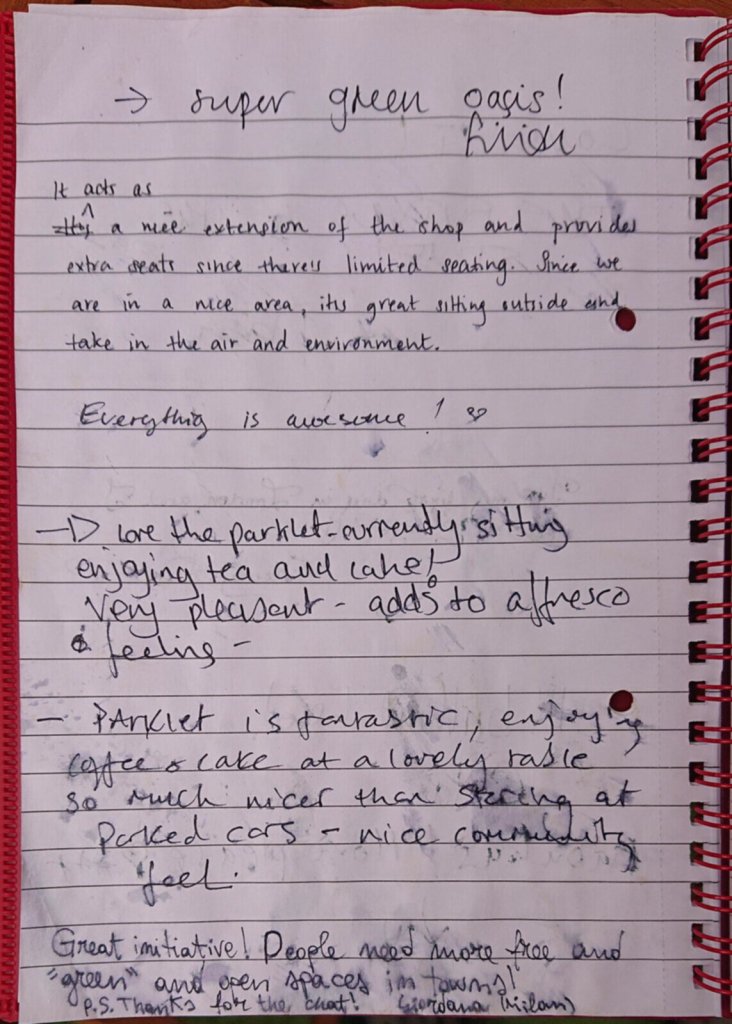 → super green oasis!
It acts as
a nice extension of the shop and provides
extra seats since there's limited seating. Since we
are in a nice area, its great sitting outside and
take in the air and environment.
Everything is awesome!
Love the parklet - currently sitting
enjoying tea and cake!
Very pleasant - adds to affresco
feeling -
- PArklet is fantastic, enjoying
coffee & cake at a lovely table
so much nicer than staring at
parked cars - nice community
feel.
Great initiative! People need more free and
"green" and open spaces in towns!
P.S. Thanks for the chat! Giordana (Milan)